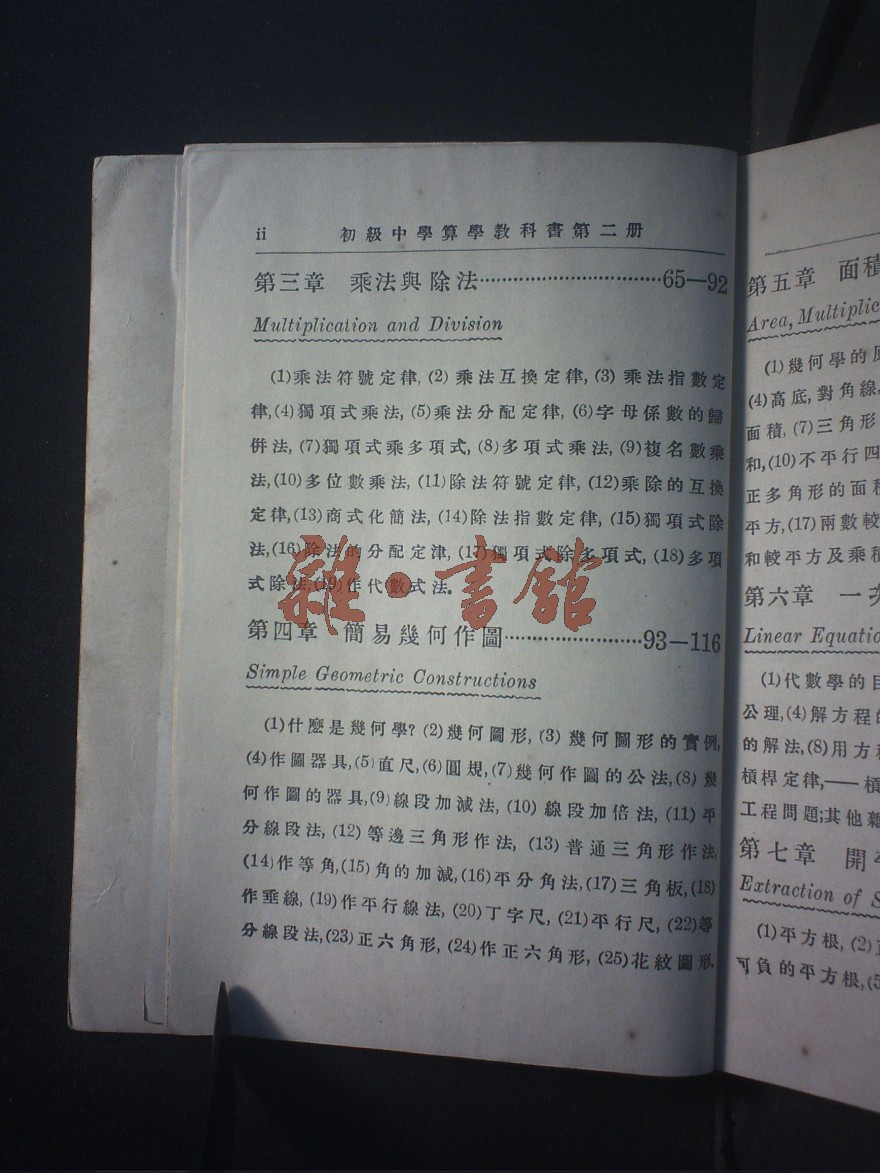 ii 初級中學算學教科書第二册
第三章 乘法與除法······························65—92
Multiplication and Division
(1)乘法符號定律, (2) 乘法互換定律, (3) 乘法指數定
律,(4)獨項式乘法, (5)乘法分配定律, (6)字母係數的歸
併法, (7)獨項式乘多項式, (8)多項式乘法, (9)複名數乘
法,(10)多位數乘法, (11)除法符號定律, (12)乘除的互換
定律,(13)商式化簡法, (14)除法指數定律, (15)獨項式除
法,(16)除法的分配定津, (17)獨項式除多項式, (18)多項
式除法,(19)作代數式法.
雜·書館
第四章 簡易幾何作圖·······················93—116
Simple Geometric Constructions
(1)什麼是幾何學? (2)幾何圖形, (3) 幾何圖形的實例,
(4)作圖器具,(5)直尺,(6)圓規,(7)幾何作圖的公法,(8) 幾
何作圖的器具,(9)線段加減法, (10) 線段加倍法, (11) 平
分線段法, (12) 等邊三角形作法, (13) 普通三角形作法,
(14)作等角,(15)角的加減,(16)平分角法,(17)三角板,(18)
作垂線, (19)作平行線法, (20)丁字尺, (21)平行尺, (22)等
分線段法,(23)正六角形, (24)作正六角形, (25)花紋圖形.
第五章 面積
Area, Multiplic
(1)幾何學的
(4)高底,對角線,
面積, (7)三角形
和,(10)不平行四
正多角形的面積
平方,(17)兩數較
和較平方及乘積
第六章 一次
Linear Equatio
(1)代數學的目
公理,(4)解方程的
的解法,(8)用方程
槓桿定律,——槓
工程問題;其他雜
第七章 開平
Extraction of S
(1)平方根, (2)
可負的平方根,(5